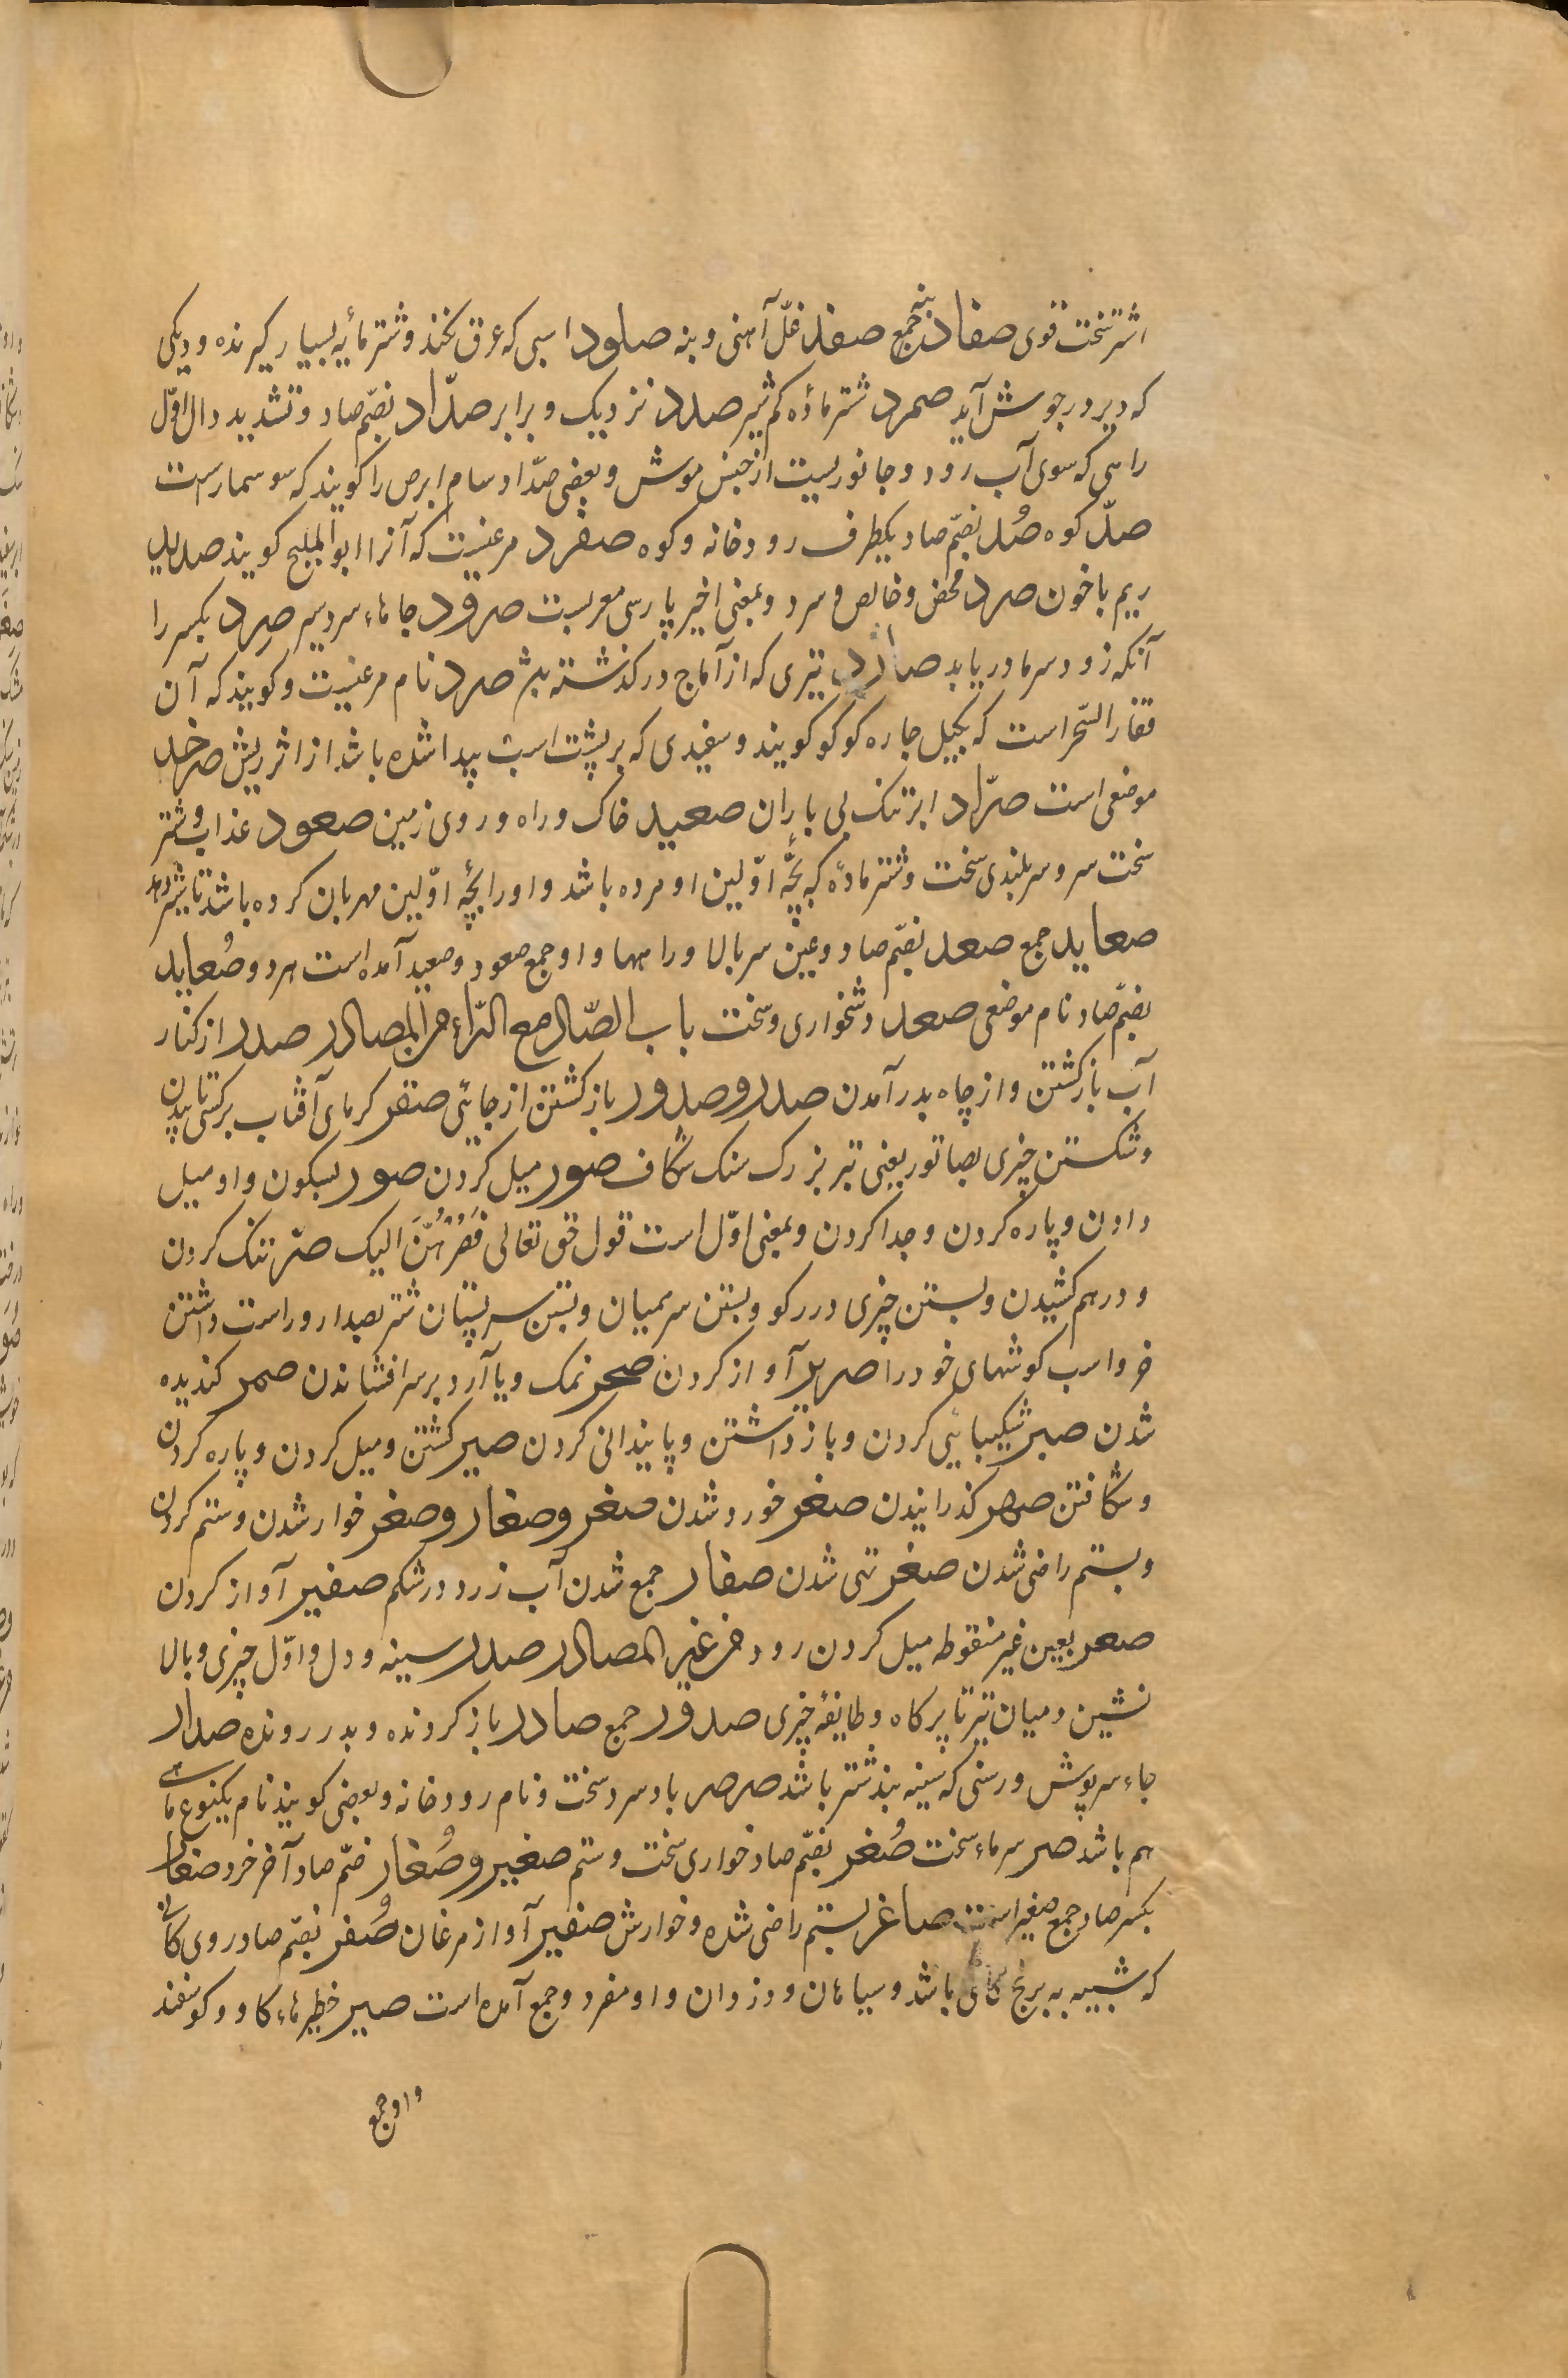 اشتر سخت قوی صفاد بند جمع صفد غلّ آهنی و بند صلود اسبی که عرق نکند و شتر مائه بسیار گیرنده و دیگی
که دیر در جوش آید صمرد شتر ماده کم شیر صدد نزدیک و برابر صدّاد بضمّ صاد و تشدید دال اوّل
راهی که سوی آب رود و جانوریست از جنس موش و بعضی صدّاد سام ابرص را کویند که سوسمارست
صدّ کوه صُد بضمّ صاد یکطرف رودخانه و کوه صفرد مرغیست که آنرا ابو الملیح کویند صدید
ریم با خون صرد محض و خالص و سرد و بمعنی اخیر پارسی معربست صرود جاهاء سردسیر صرد بکسر را
آنکه زود سرما دریابد صارد تیری که از آماج در کذشته بود صرد نام مرغیست و کویند که آن
است که بکیل جاره کوکو کویند و سفیدی که بر پشت اسب پیدا شده باشد از اثر ریش صرخد
موضعی است صرّاد ابر تنک بی باران صعید خاک و راه و روی زمین صعود عذاب و شتر
سخت سر و سربلندی سخت و شتر مادّه که بچّهٔ اوّلین او مرده باشد و او را بچهٔ اوّلین مهربان کرده باشد تا شیر دهد
صعاید جمع صعد بضمّ صاد و عین سربالا و راهها و او جمع صعود و صعید آمده است هر دو صُعاید
بضمّ صاد نام موضعی صعد دشخواری و سخت باب الصّاد مع الرّاء من المصادر صدر از کنار
آب بازکشتن و از چاه بدر آمدن صدر و صدور بازکشتن از جائی صقر کرمای آفتاب بر کسی تابیدن
و شکستن چیزی بصاقور یعنی تبر بزرک سنک شکاف صور میل کردن صور بسکون واو میل
دادن و پاره کردن و جدا کردن و بمعنی اوّل است قول حق تعالی فَصُرْهُنَّ الیک صرّ تنک کردن
و درهم کشیدن و بستن چیزی در رکو و بستن سر همیان و بستن سر پستان شتر بصدار و راست داشتن
خر و اسب کوشهای خود را صریر آواز کردن صحر نمک و یا آرد بر سر افشاندن صمر کندیده
شدن صبر شکیبائی کردن و باز داشتن و پایندانی کردن صیر کشتن و میل کردن و پاره کردن
و شکافتن صهر کذرانیدن صغر خورد شدن صغر و صغار و صغر خوار شدن و ستم کردن
و بستم راضی شدن صفر تهی شدن صفار جمع شدن آب زرد در شکم صفیر آواز کردن
صعر بعین غیر منقوطه میل کردن رود من غیر المصادر صدر سینه و دل و اوّل چیزی و بالا
نشین و میان تیر تا پر کاه و طایفهٔ چیزی صدور جمع صادر باز کردنده و بدر رونده صدار
جاء سرپوش و رسنی که سینه بند شتر باشد صرصر باد سرد سخت و نام رودخانه و بعضی کویند نام یکنوع ماهی
هم باشد صر سرماء سخت صُغر بضمّ صاد خواری سخت و ستم صغیر و صُغار ضمّ صاد آخر خرد صغار
بکسر صاد جمع صغیر است صاغر بستم راضی شده و خوارش صفیر آواز مرغان صُفر بضمّ صاد روی کانی
که شبیه به برنج کانی باشد و سیاهان و دزدان و او مفرد و جمع آمده است صیر خطیرهاء کاو و کوسفند
و او جمع